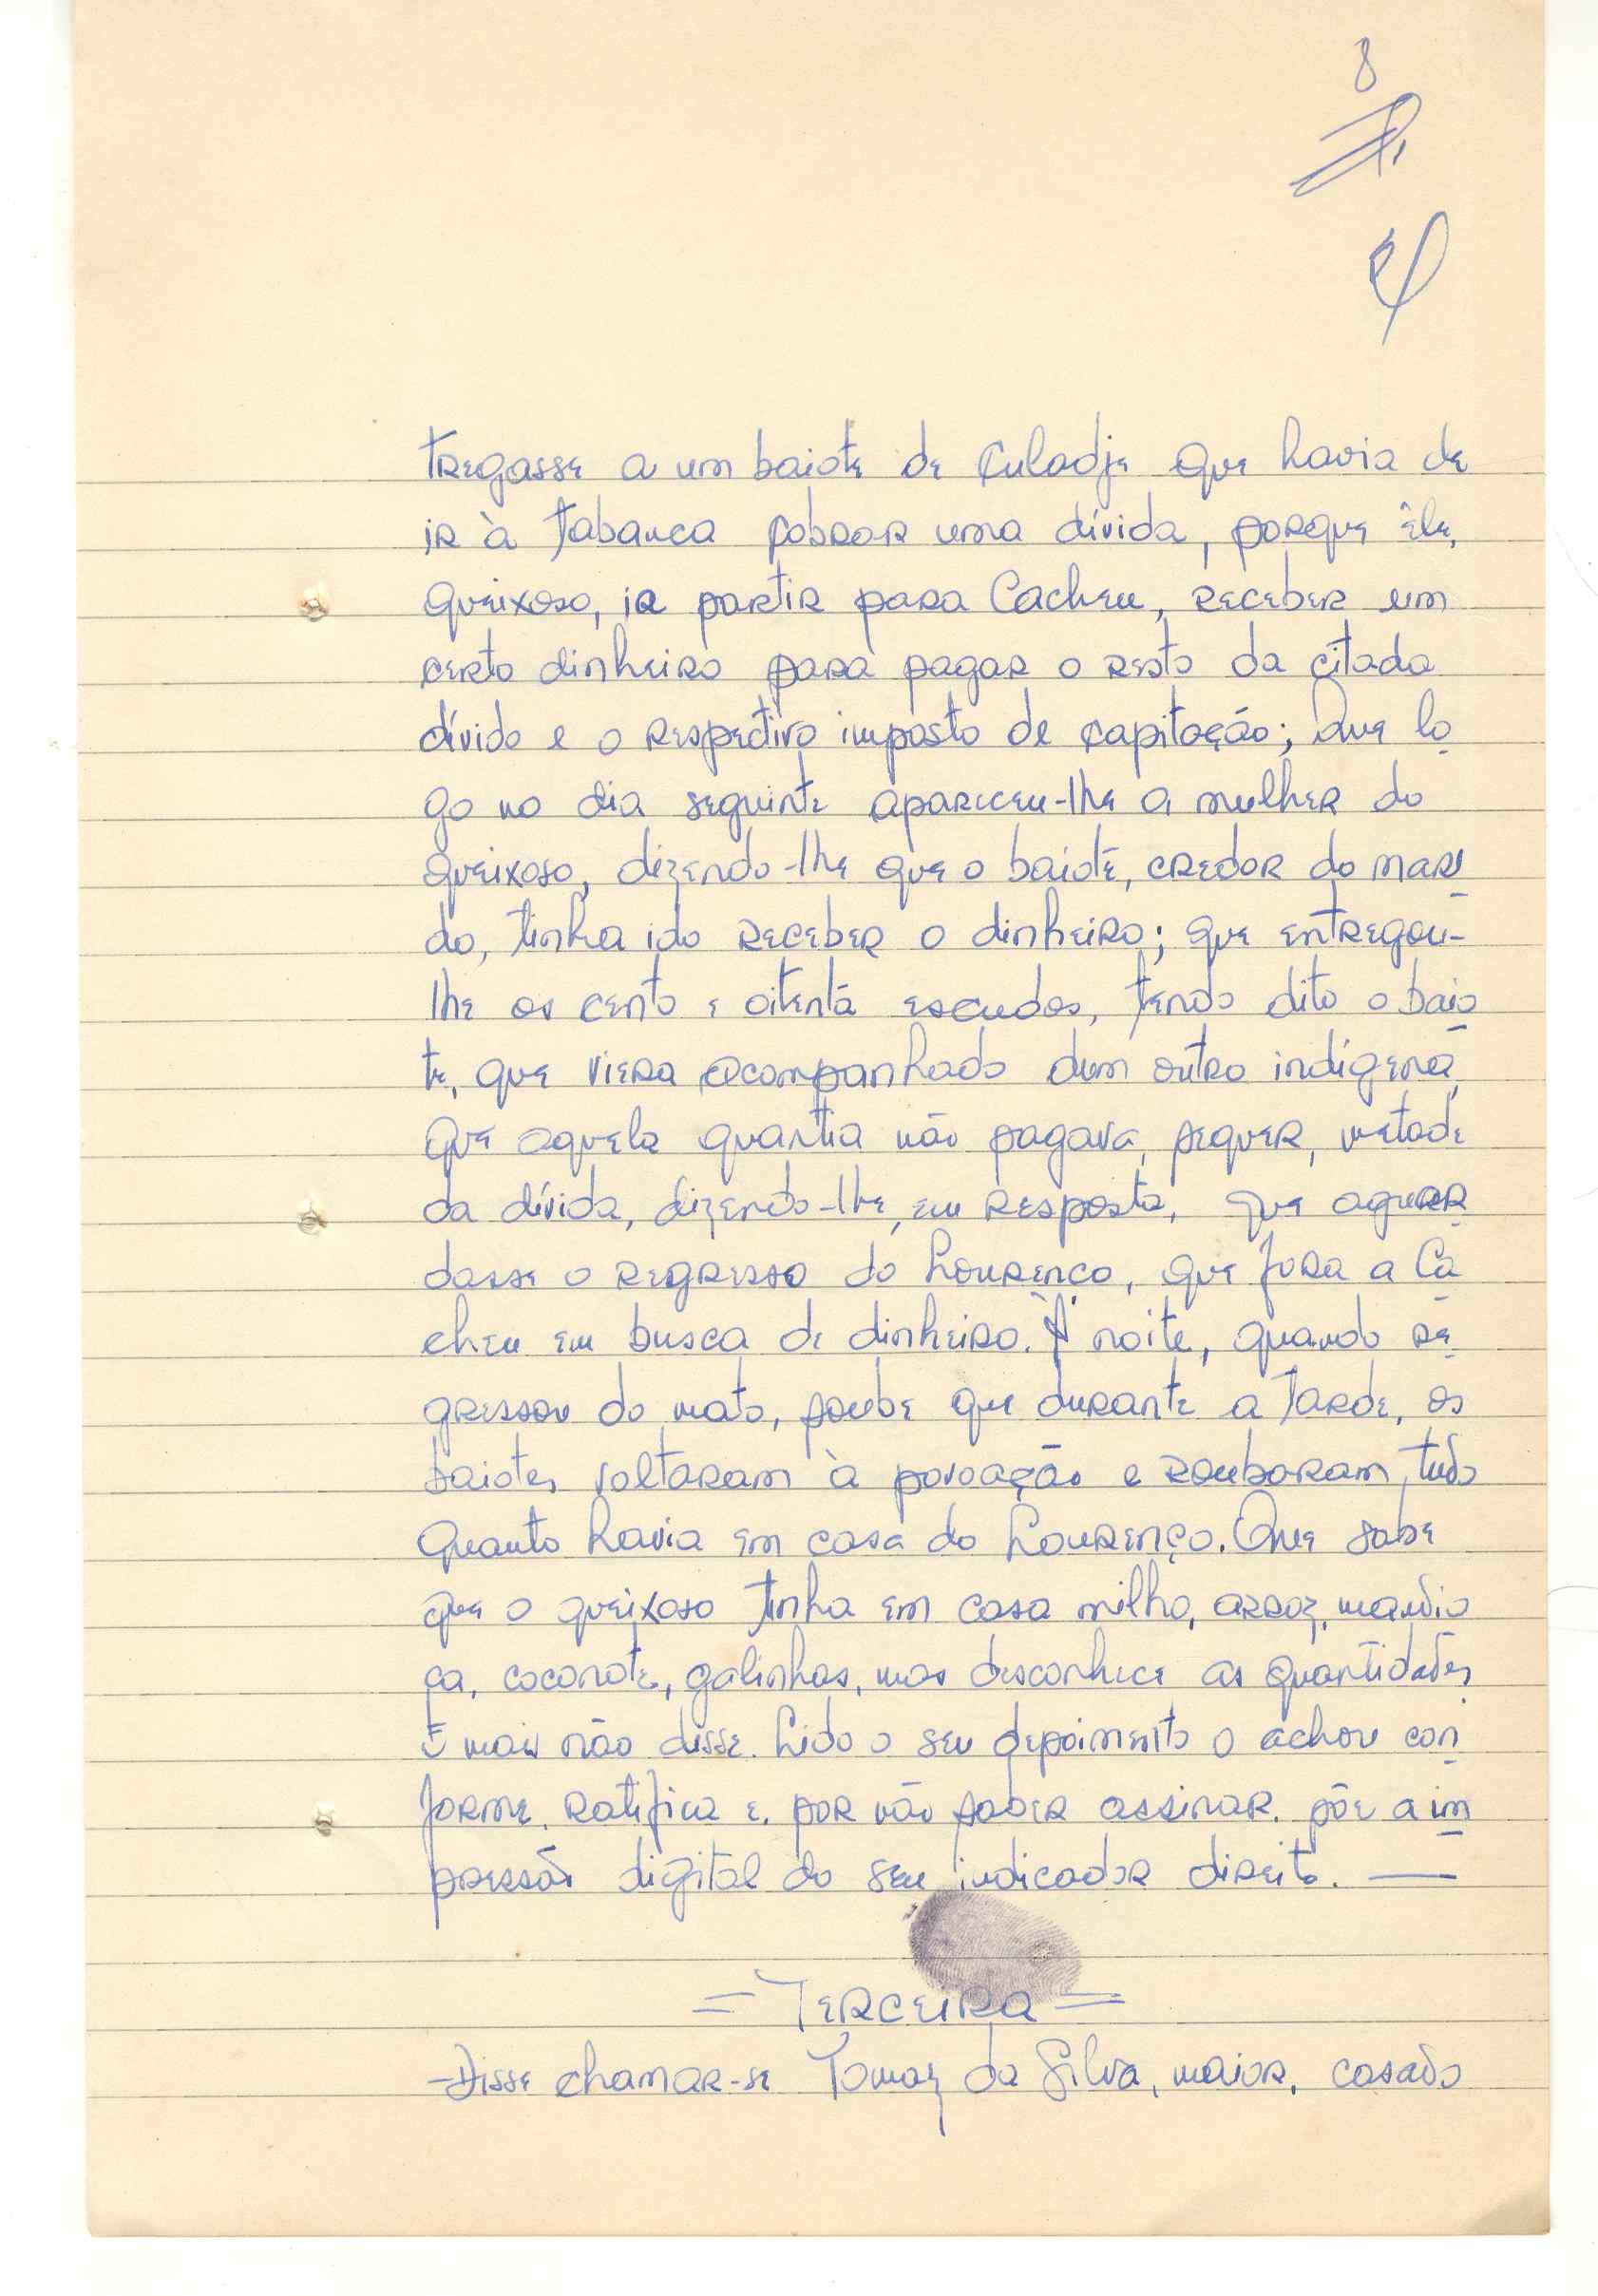 8
tregasse a um baiote de Culadje que havia de
ir à tabanca cobrar uma dívida, porque êle,
queixoso, ia partir para Cacheu, receber um
certo dinheiro para pagar o resto da citada
dívida e o respectivo imposto de capitação; Que lo
go no dia seguinte apareceu-lhe a mulher do
queixoso, dizendo-lhe que o baiote, credor do mari
do, tinha ido receber o dinheiro; que entregou-
lhe os cento e oitenta escudos, tendo dito o baio
te, que viera acompanhado dum outro indígena,
que aquela quantia não pagava, sequer, metade
da dívida, dizendo-lhe, em resposta, que aguar
dasse o regresso do Lourenço, que fora a Ca
cheu em busca de dinheiro. À noite, quando re
gressou do mato, soube que durante a tarde, os
baiotes voltaram à povoação e roubaram tudo
quanto havia em casa do Lourenço. Que sabe
que o queixoso tinha em casa milho, arroz, mandio
ca, coconote, galinhas, mas desconhece as quantidades.
E mais não disse. Lido o seu depoimento o achou con
forme, ratifica e, por não saber assinar, põe a im
pressão digital do seu indicador direito. —
= Terceira =
-Disse chamar-se Tomaz da Silva, maior, casado